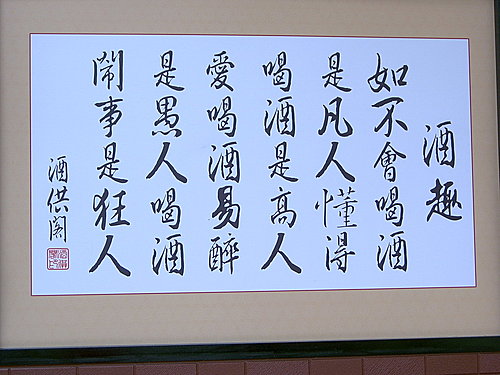 酒趣
如不會喝酒
是凡人懂得
喝酒是高人
愛喝酒易醉
是愚人喝酒
鬧事是狂人
酒供閣